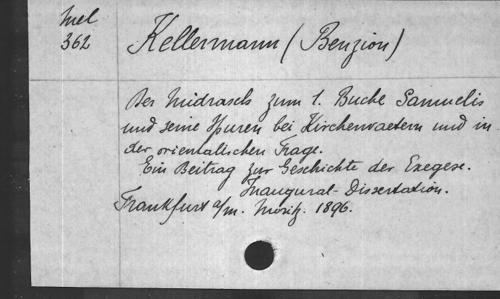 Mel
362
Kellermann (Benzion)
Der Midrasch zum 1. Buche Samuelis
und seine Spuren bei Kirchenvaetern und in
der orientalischen Frage.
Ein Beitrag zur Geschichte der Exegese.
Inaugural-Dissertation.
Frankfurt a/m. 1896.